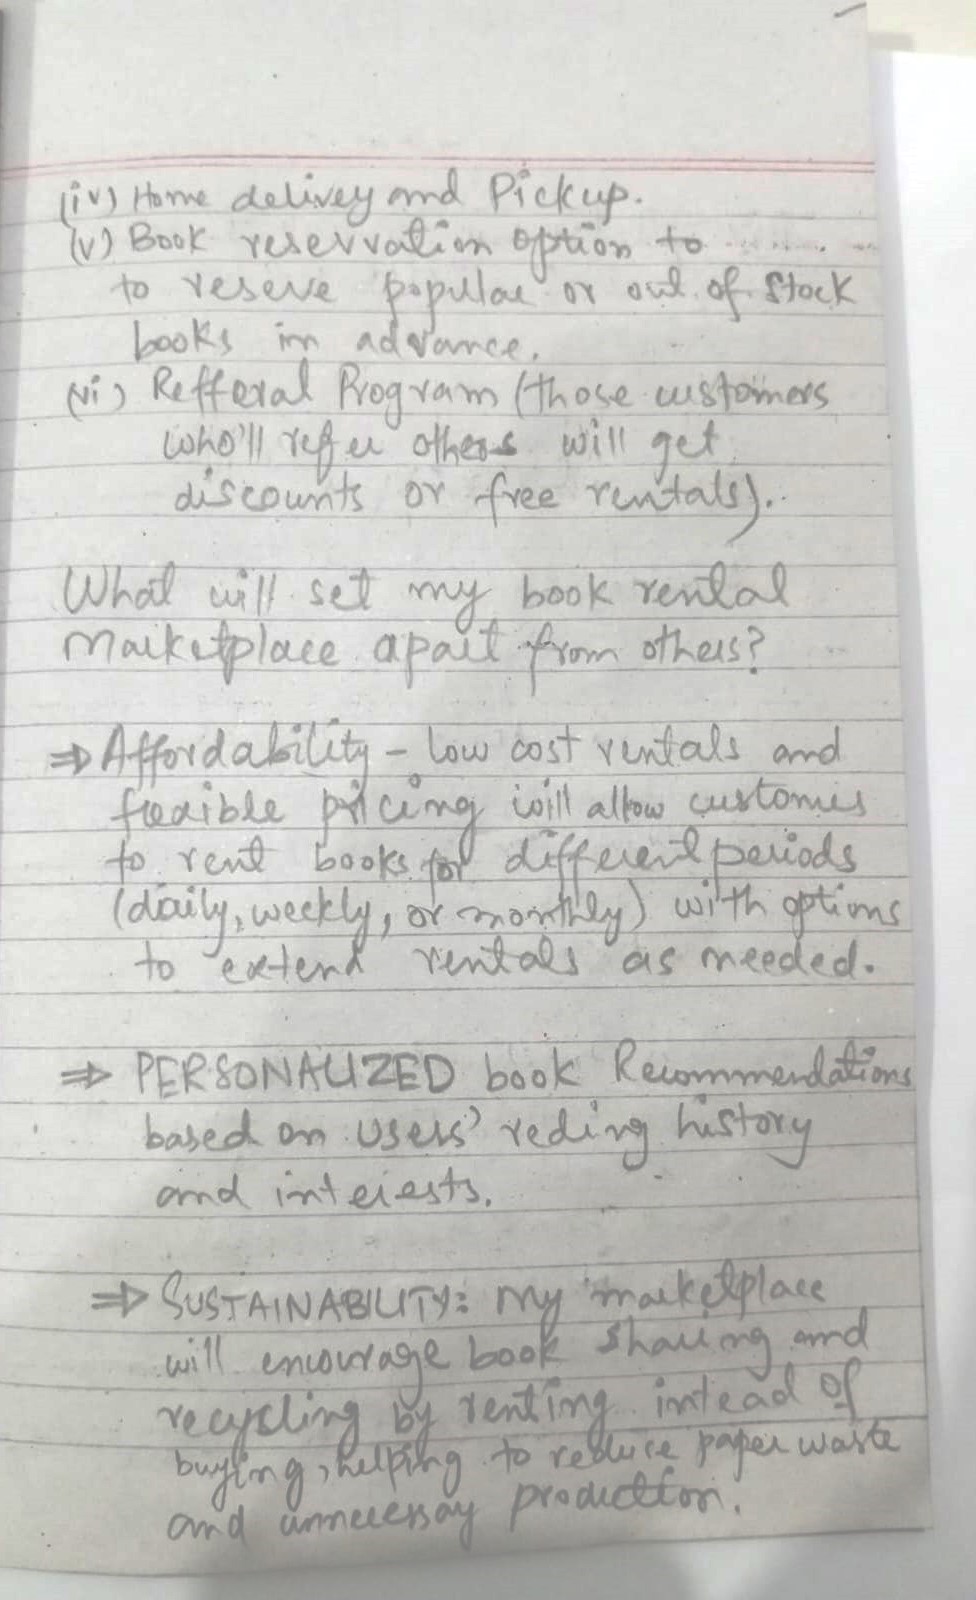 (iv) Home delivey and Pickup.
(v) Book reservation option to
to reseve popular or out of stock
books in advance.
(vi) Refferal Program (those customers
who'll refer others will get
discounts or free rentals).
What will set my book rental
marketplace apart from others?
⇒ Affordability - low cost rentals and
flexible pricing will allow customers
to rent books for different periods
(daily, weekly, or monthly) with options
to extend rentals as needed.
⇒ PERSONALIZED book Recommendations
based on users' reding history
and interests.
⇒ SUSTAINABILITY: my marketplace
will encourage book sharing and
recycling by renting intead of
buying, helping to reduce paper waste
and unnecessay production.